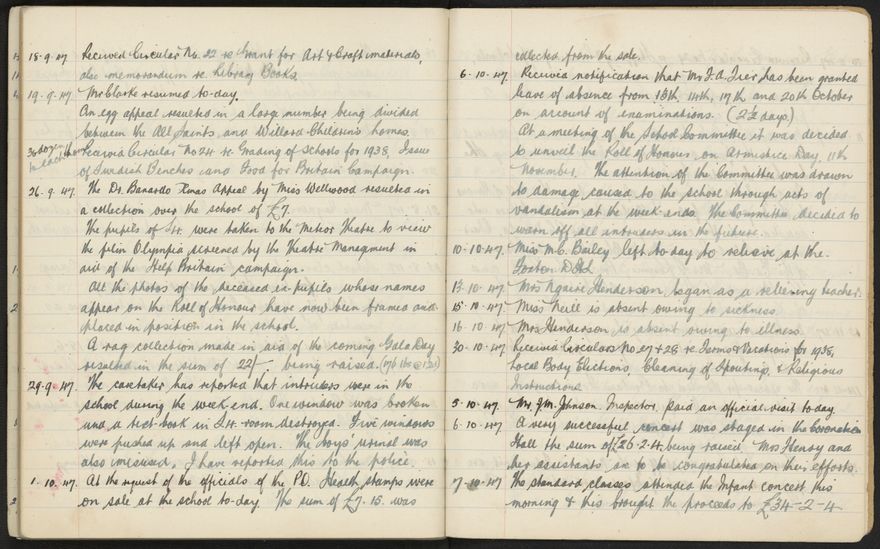 18.9.47 Received Circular No. 22 re Grant for Art & Craft materials,
also memorandum re. Library Books.
19.9.47 Mr Clarke resumed to-day.
An egg appeal resulted in a large number being divided
between the All Saints, and Willard Children's homes.
Received Circular No 24 re Grading of Schools for 1938, Issue
of Swedish Benches and Food for Britain Campaign.
26.9.47. The Dr. Banardo Xmas Appeal by Miss Wellwood resulted in
a collection over the school of £7.
The pupils of S4. were taken to the Meteor Theatre to view
the film Olympia screened by the Theatre Managment in
aid of the Help Britain campaign.
All the photos of the deceased ex-pupils whose names
appear on the Roll of Honour have now been framed and
placed in position in the school.
A rag collection made in aid of the coming Gala Day
resulted in the sum of 22/- being raised. (176 lbs @ 1½d)
29.9.47. The caretaker has reported that intruders were in the
school during the week-end. One window was broken
and a text-book in S4. room destroyed. Five windows
were pushed up and left open. The boys' urinal was
also misused. I have reported this to the police.
1.10.47. At the request of the officials of the P.O. Health stamps were
on sale at the school to-day. The sum of £7.15. was
collected from the sale.
6.10.47. Received notification that Mr has been granted
leave of absence from 13th, 14th, 17th and 20th October
on account of examinations. (2½ days.)
At a meeting of the School Committee it was decided
to unveil the Roll of Honour, on Armistice Day, 11th
November. The attention of the Committee was drawn
to damage caused to the school through acts of
vandalism at the week ends. The Committee decided to
warn off all intruders in the future.
10.10.47. Miss M.C. Bailey left to-day to relieve at the
Foxton D.H.S.
13.10.47 Mrs Ngaire Henderson began as a relieving teacher.
15.10.47. Miss Neill is absent owing to sickness.
16.10.47 Mrs Henderson is absent owing to illness.
30.10.47. Received Circulars No 27 & 28 re Terms & Vacations for 1938,
Local Body Elections, Cleaning of Spoutings, & Religious
Instructions.
5.10.47. Mr. J.M. Johnson. Inspector, paid an official visit to-day.
6.10.47. A very successful concert was staged in the Coronation
Hall the sum of £26-2-4 being raised. Mrs Henry and
her assistants are to be congratulated on their efforts.
7.10.47 The standard classes attended the Infant concert this
morning & this brought the proceeds to £34-2-4